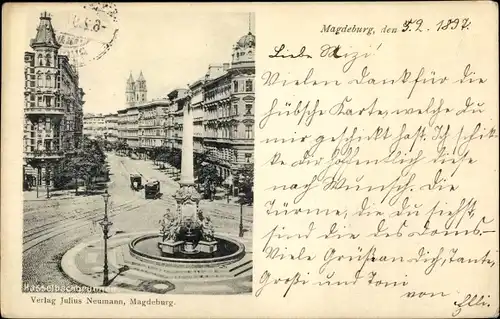 Magdeburg, den 5.9. 1897.
Liebe Mizi!
Vielen Dank für die
hübsche Karte, welche du
mir geschickt hast. Ich schik-
ke dir hoffentlich diese
nach Wunsch. Die
Türme, die du siehst,
sind die des Doms.
Viele Grüße an dich, Tante,
und Toni
von Elli.
Hasselbachbrunnen
Verlag Julius Neumann, Magdeburg.